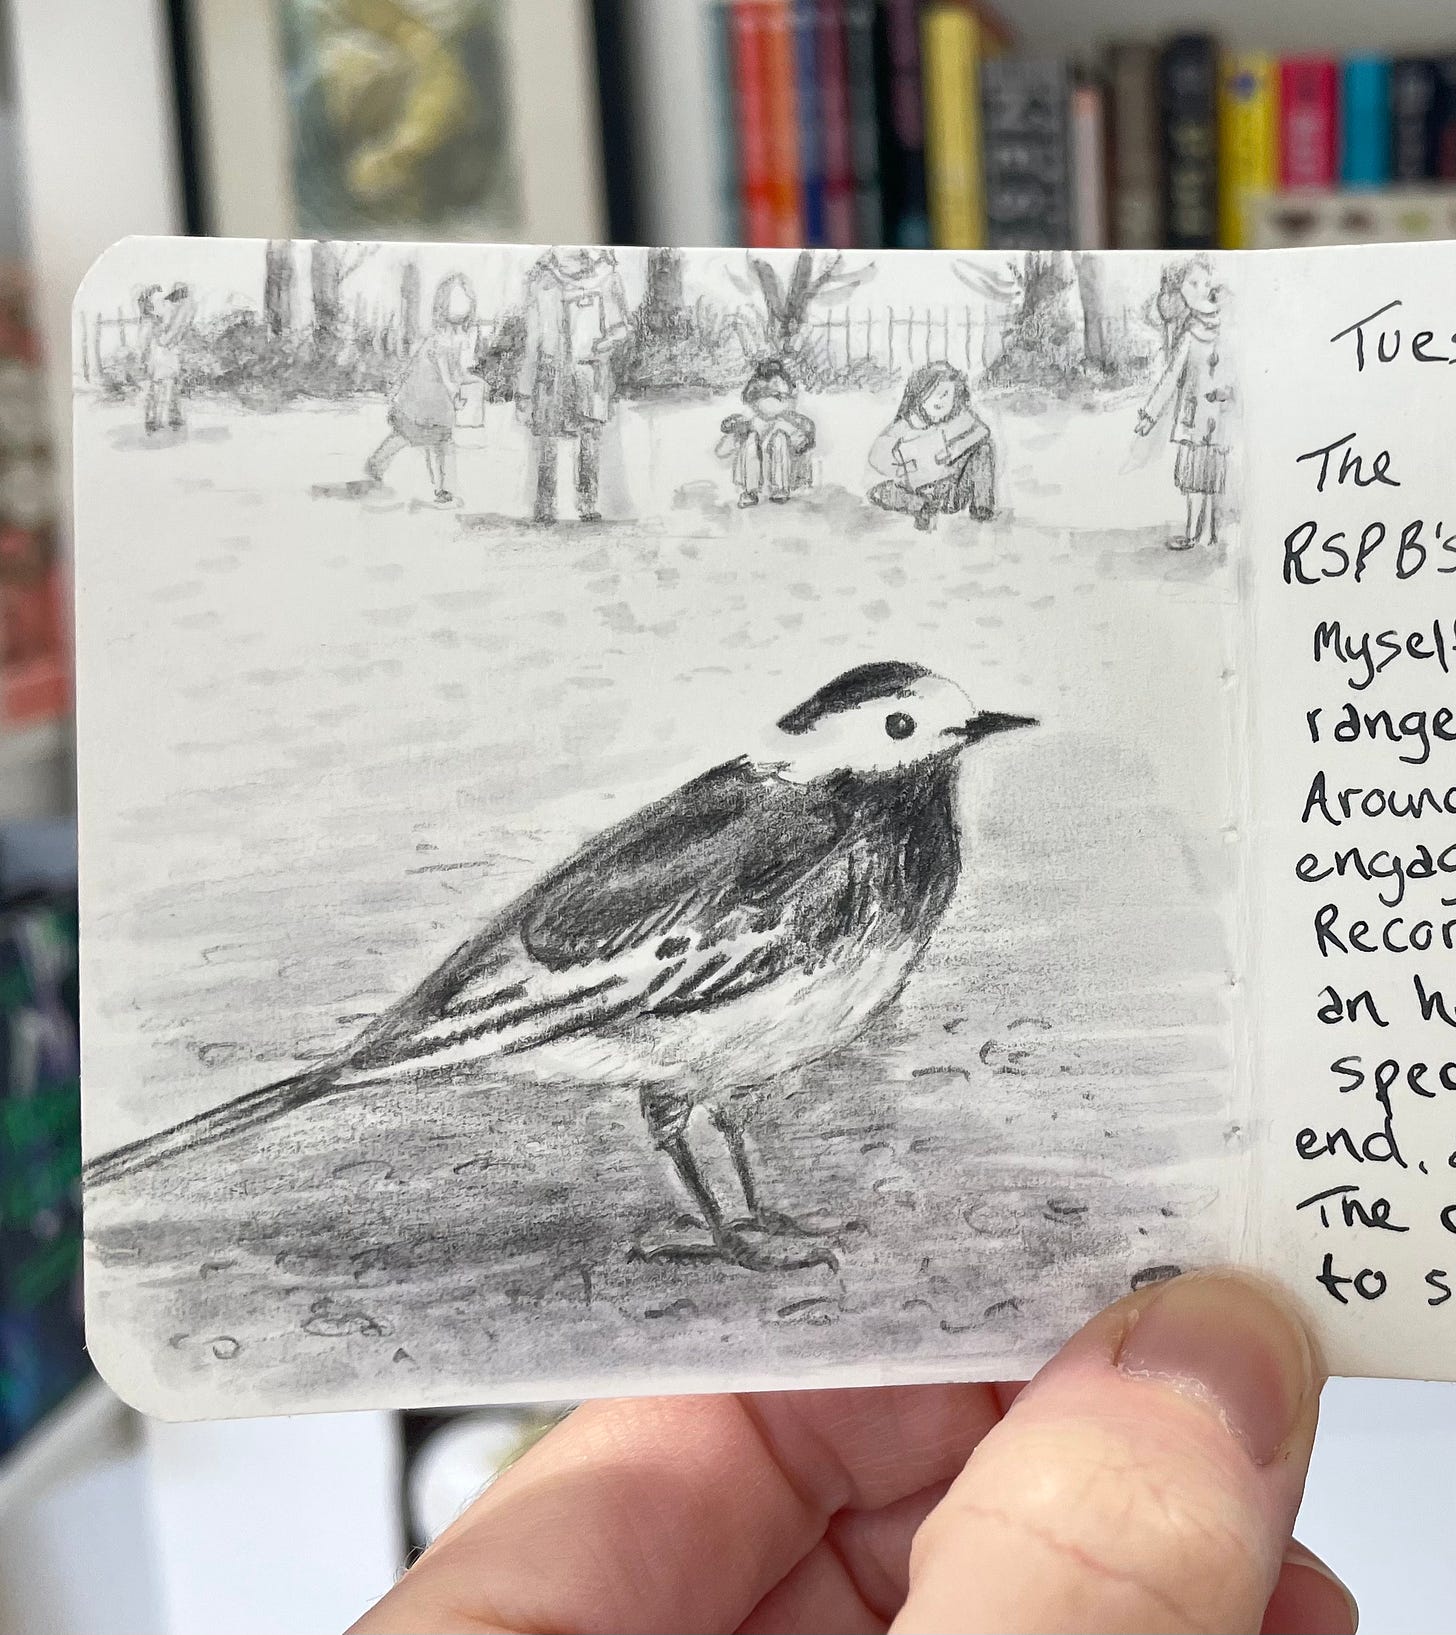 Tues
The
RSPB's
Myself
range
Around
engag
Recor
an h
spec
end.
The
to s